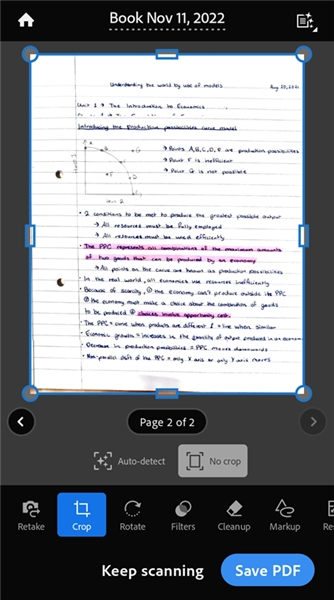 Book Nov 11, 2022
Understanding the world by use of models
Aug 29, 2021
Unit 1 → The Introduction to Economics
Introducing the production possibilities curve model
→ Points A, B, C, D, E are production possibilities
→ Point F is inefficient
→ Point G is not possible
• 2 conditions to be met to produce the greatest possible output
→ All resources must be fully employed
→ All resources must be used efficiently
• The PPC represents all combinations of the maximum amounts
of two goods that can be produced by an economy
→ All points on the curve are known as production possibilities
• In the real world, all economies use resources inefficiently
• Because of scarcity, ① the economy can't produce outside its PPC
② the economy must make a choice about the combination of goods
to be produced ③ choices involve opportunity cost.
• The PPC = curve when products are different & = line when similar
• Economic growth = increases in the quantity of output produced in an economy
• Decrease in production possibilities = PPC moves downwards
• Non-parallel shift of the PPC = only X axis or only Y axis moves
Page 2 of 2
Auto-detect
No crop
Retake
Crop
Rotate
Filters
Cleanup
Markup
Keep scanning
Save PDF